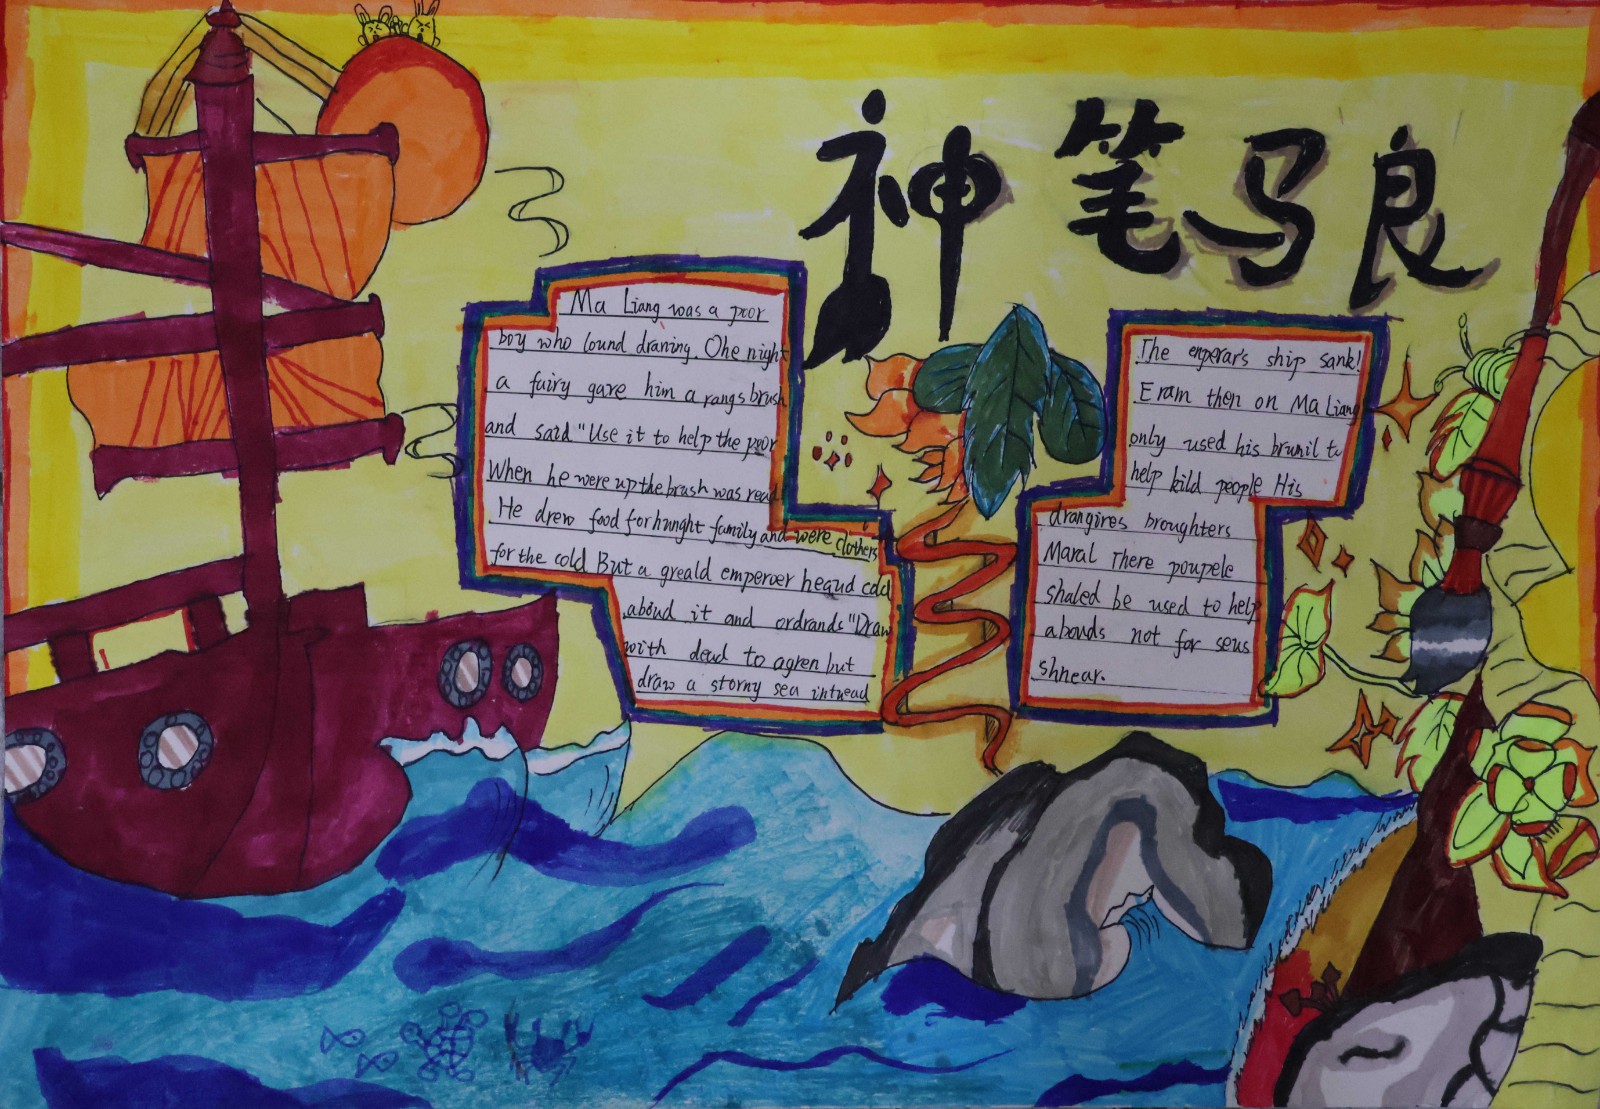 神笔马良
Ma Liang was a poor
boy who lound draning, Ohe night
a fairy gave him a rangs brush
and said "Use it to help the poor
When he were up the brush was read
He drew food for hunght family and were clothers
for the cold But a greald emperoer hequd cdd
aboud it and ordrands "Draw
with dead to agren but
draw a storny sea intread
The emperar's ship sank!
Eram then on Ma Liang
only used his brunil to
help kild people His
drangires broughters
Maral There poupele
shaled be used to help
abouds not for seus
shnear.